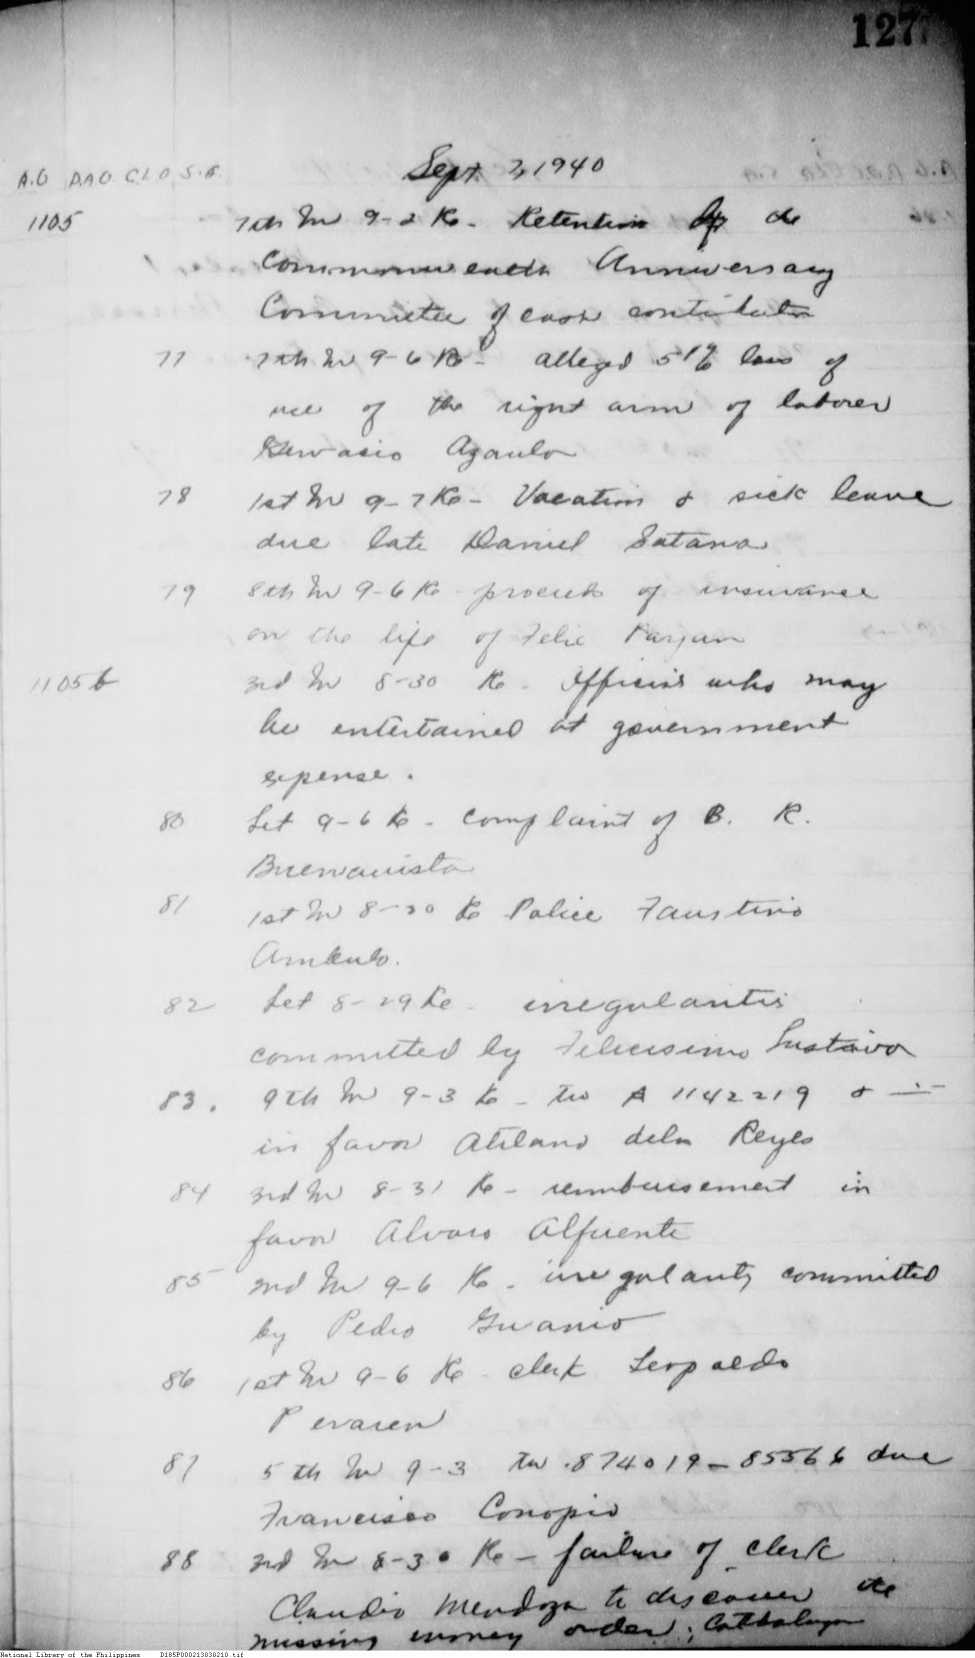 127
Sept 3, 1940
A.G D.A.O. C.L.O. S.A.
1105 7th In 9-2 Re - Retention by the
Commonwealth Anniversary
Committee of cash contribution
77 7th In 9-6 Re - alleged 51% loss of
use of the right arm of laborer
Gervacio
78 1st In 9-7 Re - Vacation & sick leave
due late Daniel Satana
79 8th In 9-6 Re - proceeds of insurance
on the life of Felix
1105 b 3rd In 8-30 Re - Officials who may
be entertained at government
expense.
80 Let 9-6 Re - complaint of B. R.
Buenavista
81 1st In 8-30 Re Police Faustino
82 Let 8-29 Re - irregularities
committed by Felicisimo
83. 9th In 9-3 Re - tw A 1142219 &
in favor Atilano dela Reyes
84 3rd In 8-31 Re - reimbursement in
favor Alvaro Alfuente
85 2nd In 9-6 Re - irregularity committed
by Pedro Guanio
86 1st In 9-6 Re - clerk Leopoldo
87 5th In 9-3 tw 874019 - 85566 due
Francisco Conopio
88 3rd In 8-30 Re - failure of clerk
Claudio Mendoza to discover the
missing money order; Catbalogan
National Library of the Philippines D185P000213838210.tif